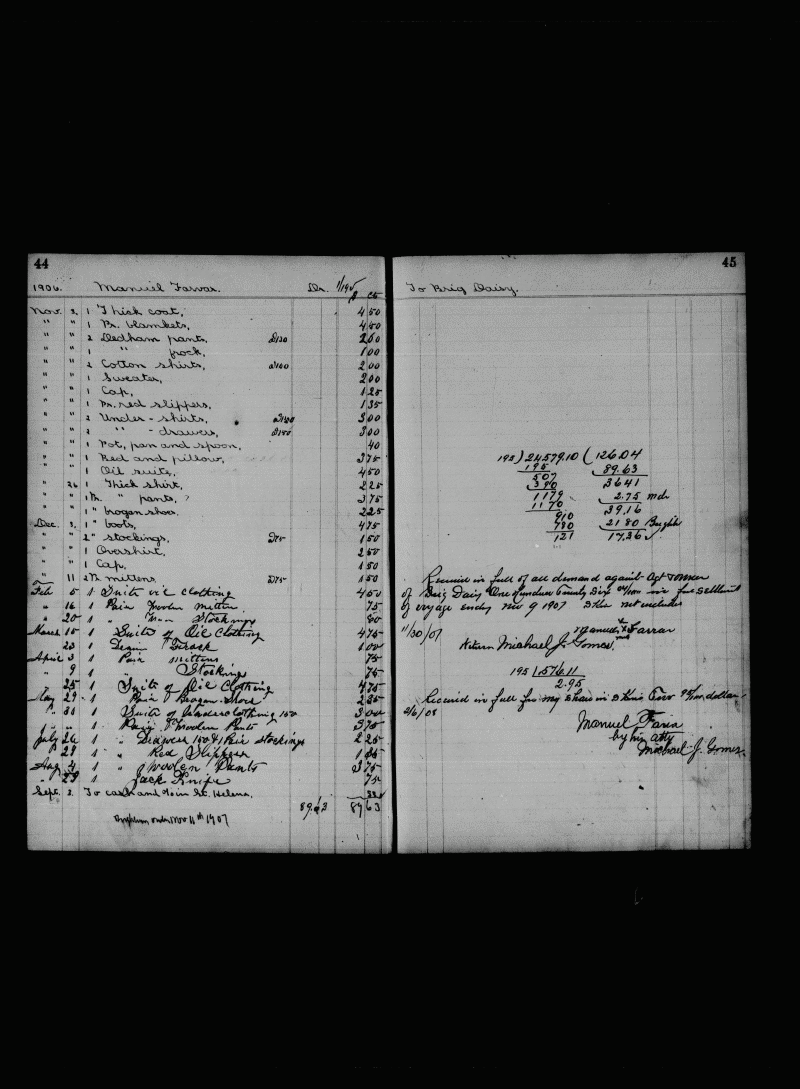 44
1906. Manuel Farvar. Dr. 1/195
$ cts
Nov. 2, 1 Thick coat, 4 50
" " 1 Pr. blankets, 4 50
" " 2 Dedham pants, 2 00
" " 1 " frock, 1 00
" " 2 Cotton shirts, 2 00
" " 1 Sweater, 2 00
" " 1 Cap, 1 25
" " 1 Pr. red slippers, 1 35
" " 2 Under-shirts, 3 00
" " 2 " -drawers, @150 3 00
" " 1 Pot, pan and spoon, 40
" " 1 Bed and pillow, 3 75
" " 1 Oil suits, 4 50
" 26 1 Thick shirt, 2 25
" " 1 Pr. " pants, 3 75
" " 1 " brogan shoes, 2 25
Dec. 3, 1 " boots, 4 75
" " 2 " stockings, @75 1 50
" " 1 Overshirt, 2 50
" " 1 Cap, 1 50
" 11 2 Pr. mittens @75 1 50
Feb 5 1 Suite oil clothing 4 50
" 16 1 Pair Woolen mitten 75
" 20 1 " Stockings 80
March 15 1 Suite of Oil Clothing 4 75
" 23 1 Frock 1 00
April 3 1 Pair mittens 75
" 9 1 Stockings 75
" 25 1 Suite of Oil Clothing 4 75
May 29 1 Pair Brogan Shoes 2 25
" 31 1 Suite of Underclothing 150 3 00
" " 1 Pair Woolen Pants 3 75
July 26 1 " Drawers 150 & 1 Pair stockings 2 25
" 29 1 " Red Slippers 1 35
Aug 4 1 " Woolen Pants 3 75
" 29 1 Jack Knife 75
Sept. 2. To cash and in St. Helena.
89.63 89 63
Nov 11th 1907
45
To Brig Daisy.
195 ) 24579.10 ( 126.04
195 89.63
507 36 41
390 2.75 mds
1179 39.16
1170 21 80
910 17.36
780
121
Received in full of all demand against Agt Owner
of Brig Daisy One Hundred Twenty Six 04/100 in full settlement
of voyage ending Nov 9 1907 not included
11/30/07 Manuel X Farrar
Witness Michael J. Gomes.
195 ) 576.11
2.95
Received in full for my share in 95/100 dollars
2/6/08
Manuel Faria
by his atty
Michael J. Gomes